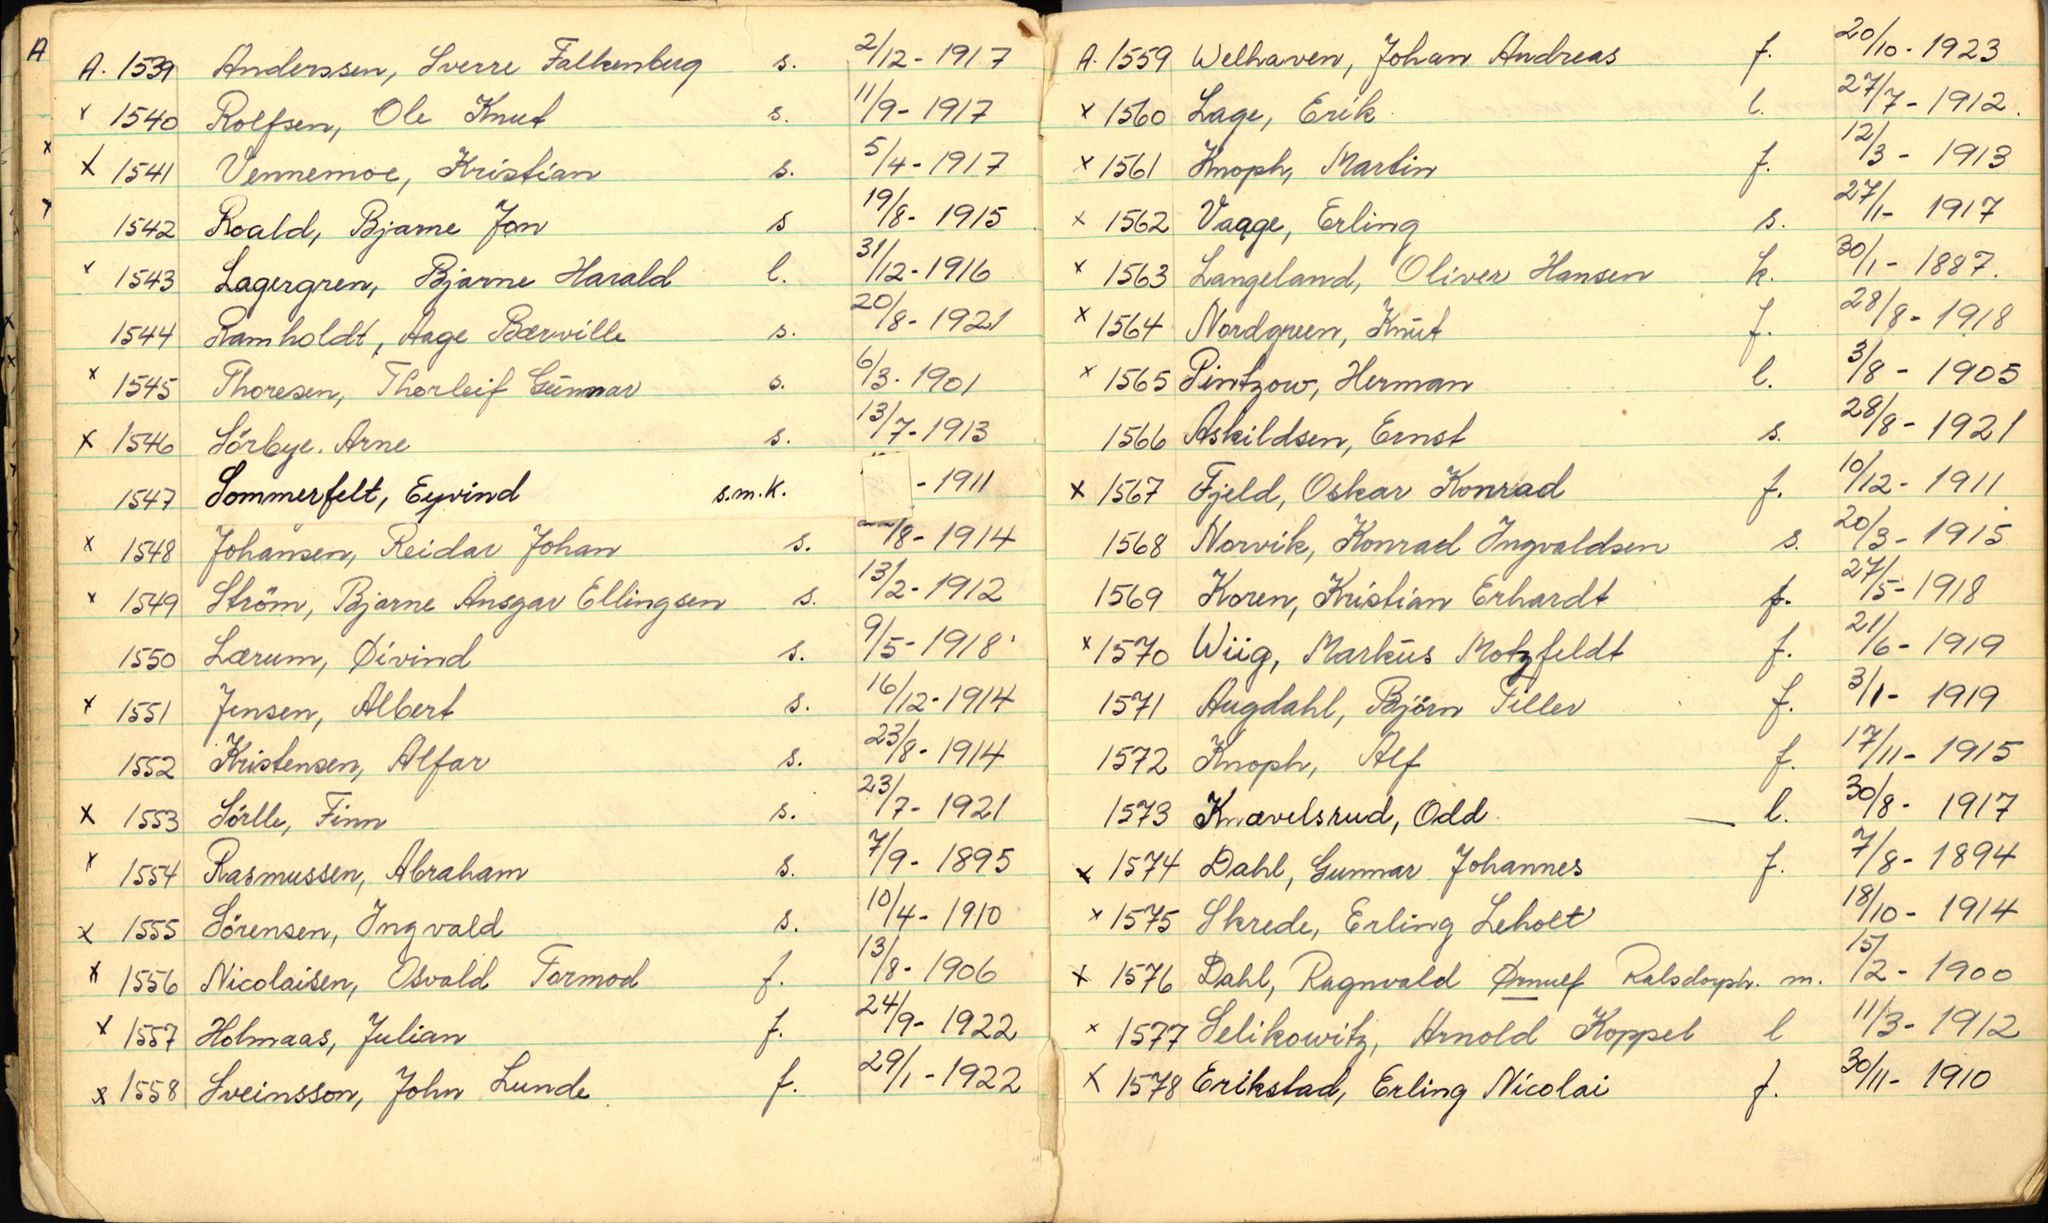 A
A. 1539 Anderssen, Sverre Falkenberg s. 2/12 - 1917
x 1540 Rolfsen, Ole Knut s. 11/9 - 1917
x 1541 Vennemoe, Kristian s. 5/4 - 1917
1542 Roald, Bjarne Jon s 19/8 - 1915
x 1543 Lagergren, Bjarne Harald l. 31/12 - 1916
1544 Ramholdt, Aage Bærville s. 20/8 - 1921
x 1545 Thoresen, Thorleif Gunnar s. 6/3 - 1901
x 1546 Sörbye. Arne s. 13/7 - 1913
1547 Sommerfelt, Eyvind s.m.k. - 1911
x 1548 Johansen, Reidar Johan s. /8 - 1914
x 1549 Ström, Bjarne Ansgar Ellingsen s. 13/2 - 1912
1550 Lærum, Øivind s. 9/5 - 1918
x 1551 Jensen, Albert s. 16/12 - 1914
1552 Kristensen, Alfar s. 23/8 - 1914
x 1553 Sörlle, Finn s. 23/7 - 1921
x 1554 Rasmussen, Abraham s. 7/9 - 1895
x 1555 Sörensen, Ingvald s. 10/4 - 1910
x 1556 Nicolaisen, Osvald Tormod f. 13/8 - 1906
x 1557 Holmaas, Julian f. 24/9 - 1922
x 1558 Sveinsson, John Lunde f. 29/1 - 1922
A. 1559 Welhaven, Johan Andreas f. 20/10 - 1923
x 1560 Lage, Erik l. 27/7 - 1912.
x 1561 Knoph, Martin f. 12/3 - 1913
x 1562 Vagge, Erling s. 27/1 - 1917
x 1563 Langeland, Oliver Hansen k. 30/1 - 1887.
x 1564 Nordgreen, Knut f. 28/8 - 1918
x 1565 Pintzow, Herman l. 3/8 - 1905
1566 Askildsen, Ernst s. 28/8 - 1921
x 1567 Fjeld, Oskar Konrad f. 10/12 - 1911
1568 Norvik, Konrad Ingvaldsen s. 20/3 - 1915
1569 Koren, Kristian Erhardt f. 27/5 - 1918
x 1570 Wiig, Markus Motzfeldt f. 21/6 - 1919
1571 Augdahl, Björn Tiller f. 3/1 - 1919
1572 Knoph, Alf f. 17/11 - 1915
1573 Knævelsrud, Odd l. 30/8 - 1917
x 1574 Dahl, Gunnar Johannes f. 7/8 - 1894
x 1575 Skrede, Erling Leholt 18/10 - 1914
x 1576 Dahl, Ragnvald Ørnulf Ralsdorph. m. 15/2 - 1900
x 1577 Selikowitz, Arnold Koppel l 11/3 - 1912
x 1578 Erikstad, Erling Nicolai f. 30/11 - 1910